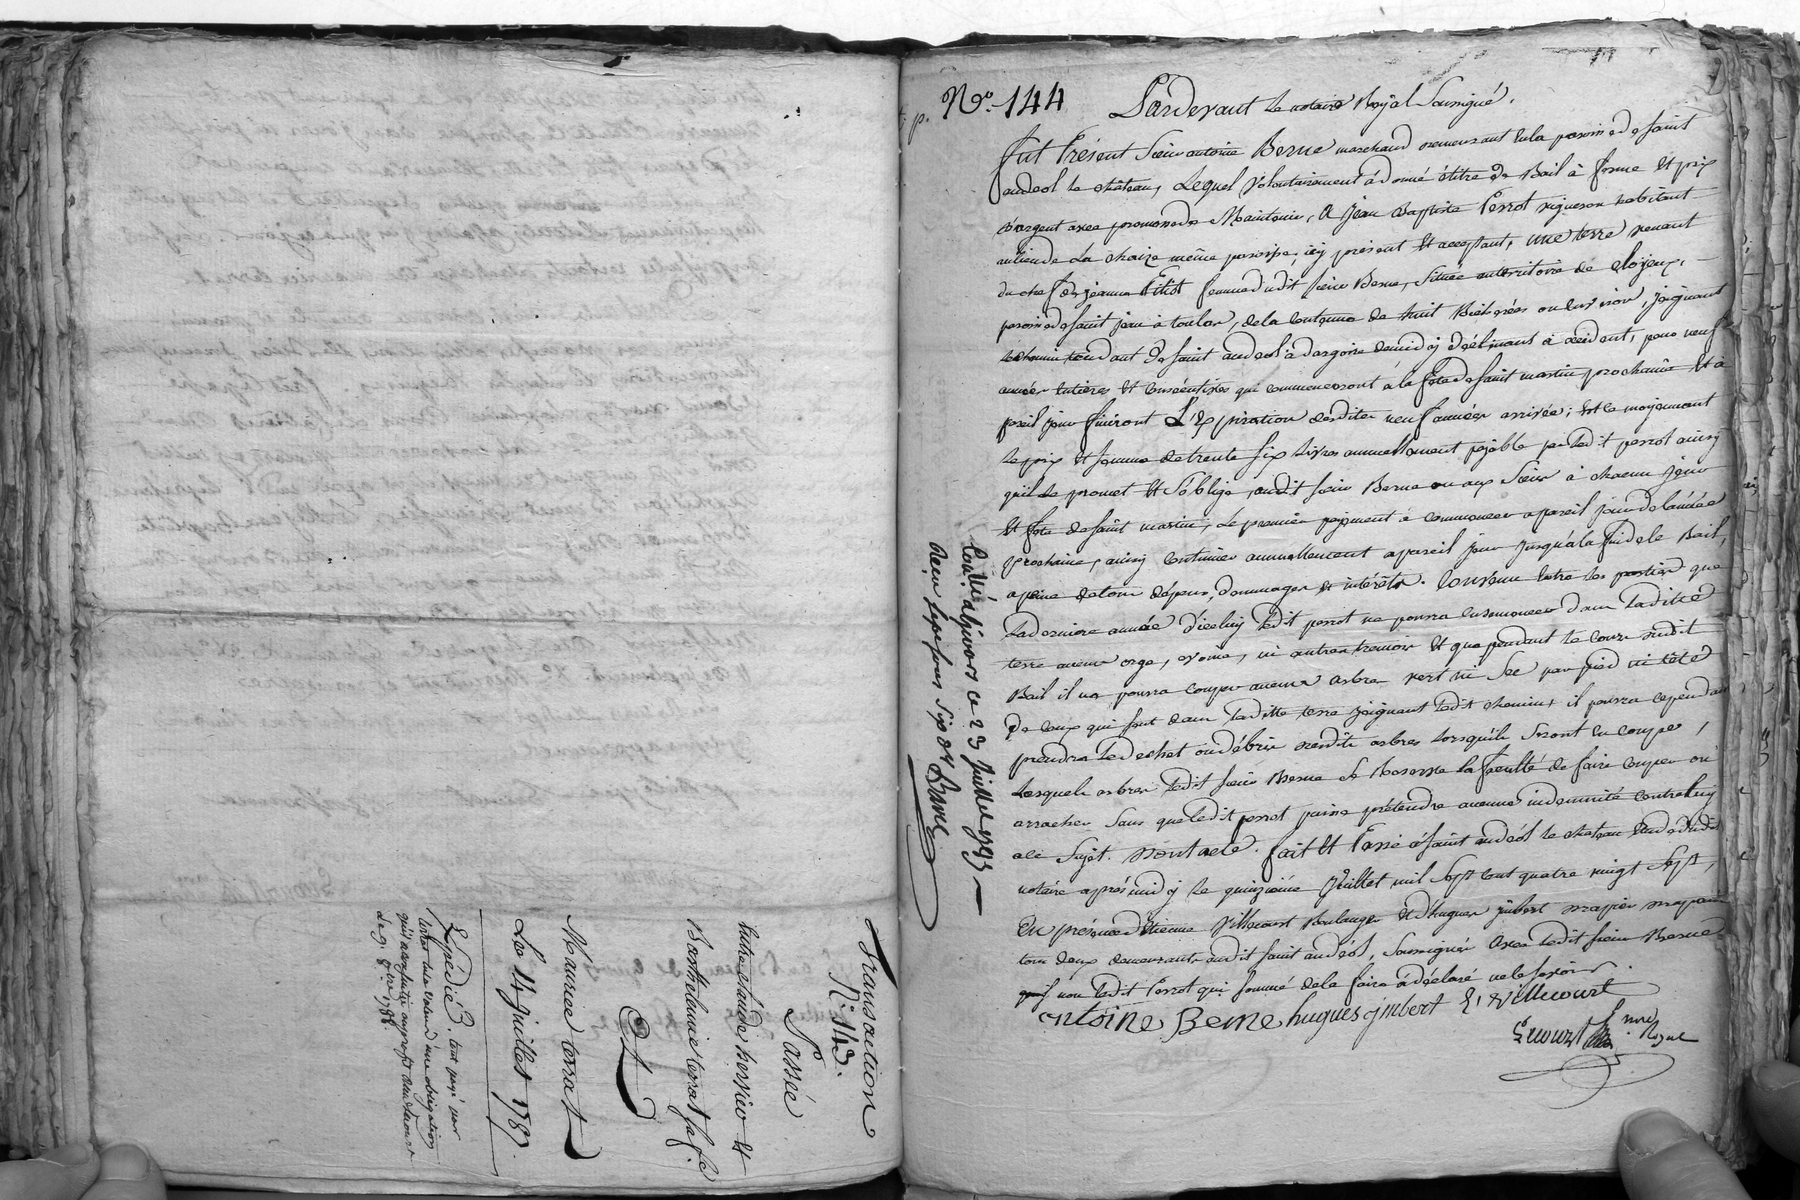 Transaction
N°. 143.
Passée
Entre claude hervier Et
Barthelemie terrat sa fe
Et
Maurice terrat
Le 14 juillet 1787.
Expédié. tout payé
N°. 144
Pardevant Le notaire Royal Soussigné.
fut Présent Sieur antoine Berne marchand demeurant En la paroisse de saint
andeol le château, Lequel volontairement à donné à titre de Bail à ferme Et prix
d'argent avec promesse de Maintenir, à Jean Baptiste Perrot vigneron habitant
au lieu de La chaize même paroisse, icy présent Et acceptant, une terre venant
du chef de jeanne femme dudit sieur Berne, située au territoire de
paroisse de saint jean à toulas, de la contenue de huit Bicherées ou Environ, joignant
le chemin tendant de saint andeol à dargoire de midy déclinant à occident, pour neuf
années Entieres Et consécutives qui commenceront à la fête de saint martin prochaine Et à
pareil jour finiront L'Expiration desdites neuf années arrivée; Et ce moyennant
le prix Et somme de trente six Livres annuellement payable par ledit perrot ainsy
qu'il le promet Et s'oblige, audit sieur Berne ou aux siens à chacun jour
Et fête de saint martin, Le premier payement à commencer à pareil jour de l'année
prochaine, ainsy continuer annuellement à pareil jour jusqu'à la fin de le Bail,
à peine de tous dépens, dommages Et intérêts. Convenu Entre les parties que
La derniere année d'icelluy Ledit perrot ne pourra Ensemencer dans Laditte
terre aucun orge, avoine, ni autres tremois Et que pendant le cours dudit
Bail il ne pourra couper aucuns arbres vert ni sec par pied ni tête
De ceux qui sont dans Laditte terre joignant Ledit chemin, il pourra cependant
prendre Le dechet ou débris desdits arbres Lorsqu'ils seront En coupe,
Lesquels arbres Ledit sieur Berne se Reserve la faculté de faire couper ou
arracher sans que Ledit perrot puisse prétendre aucune indemnité contre luy
à ce sujet. Dont acte. fait Et Passé à saint andeol le chateau Etude dudit
notaire après midy le quinzieme Juillet mil sept cent quatre vingt sept,
En présence d'Etienne villecourt Boulanger Et d'hugues jmbert
tous deux demeurants audit saint andeol, soussignés avec Ledit sieur Berne
non Ledit Perrot qui sommé de le faire à déclaré ne le savoir.
antoine Berne hugues jmbert Et villecourt
nre Royal
Conllé à givors ce 23 Juillet 1787
Reçu